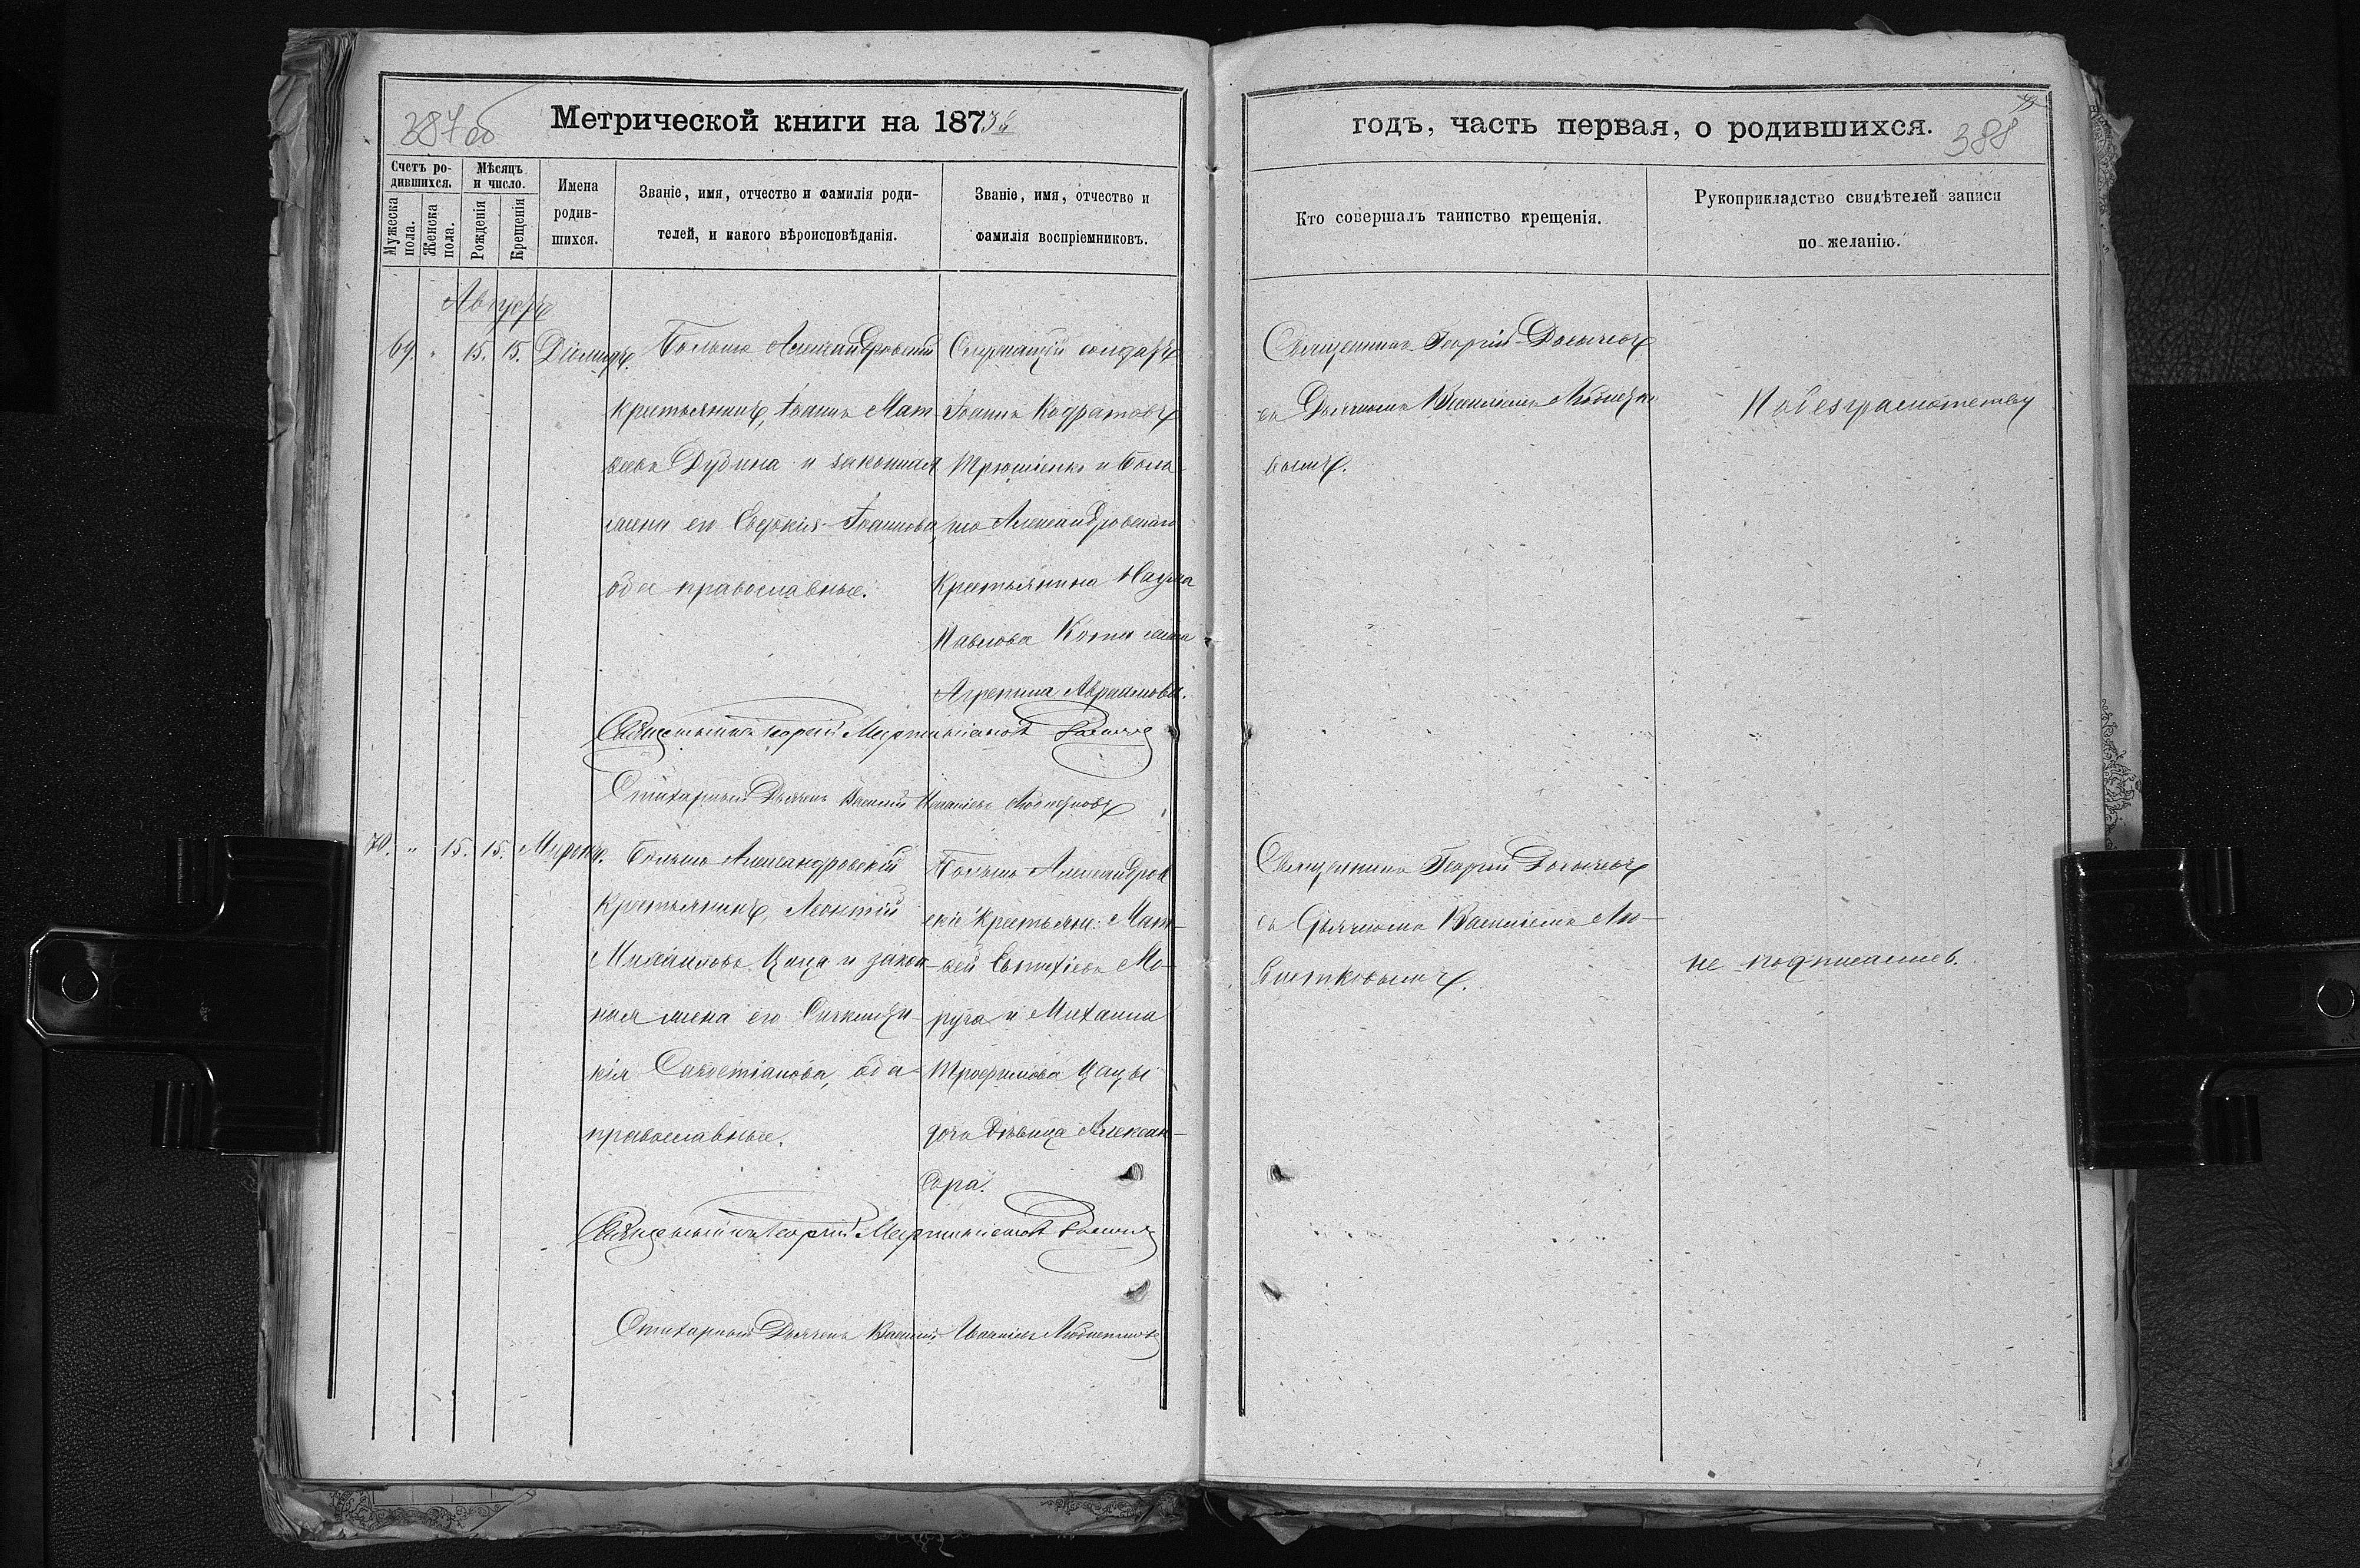 387 об
Метрической книги на 187
годъ, часть первая, о родившихся.
388
Счетъ ро-
дившихся.
Мужеска
пола.
Женска
пола.
Мѣсяцъ
и число.
Рожденія
Крещенія
Имена
родив-
шихся.
Званіе, имя, отчество и фамилія роди-
телей, и какого вѣроисповѣданія.
Званіе, имя, отчество и
фамилія воспріемниковъ.
Кто совершалъ таинство крещенія.
Рукоприкладство свидѣтелей записи
по желанію.
Августъ
69. " 15. 15. Діомидъ.
Больше Александровскій
крестьянинъ, Іоаннъ Мат-
веевъ Дубина и законная
жена его Іоаннова,
оба православные.
Служащій солдатъ
Іоаннъ
и Боль-
ше Александровскаго
Крестьянина Наума
Павлова Кота жена
Агрепина Авраамова.
Священникъ Георгій
съ Дьячкомъ Василіемъ
По безграмотству
Священникъ Георгій
Стихарный Дьячекъ Василій
70. " 15. 15. Миронъ.
Больше Александровскій
Крестьянинъ, Леонтій
Михайловъ Цаца и закон-
ная жена его
Савостіанова, оба
православные.
Больше Александров-
скіе Крестьяне: Мат-
вей Евтихіевъ Мо-
руга и Михаила
Трофимова Цацы
дочь Дѣвица Алексан-
дра.
Священникъ Георгій
съ Дьячкомъ Василіемъ Лю-
не подписались.
Священникъ Георгій
Стихарный Дьячекъ Василій